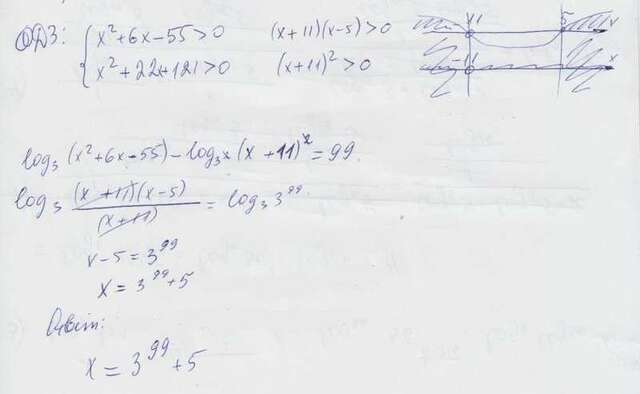 ОДЗ: { x²+6x-55>0 (x+11)(x-5)>0
x²+22x+121>0 (x+11)²>0
-11 5 x
-11 x
log₃(x²+6x-55)-log₃²(x+11)²=99.
log₃ (x+11)(x-5)/(x+11) = log₃3⁹⁹
x-5=3⁹⁹
x=3⁹⁹+5
Ответ:
x=3⁹⁹+5